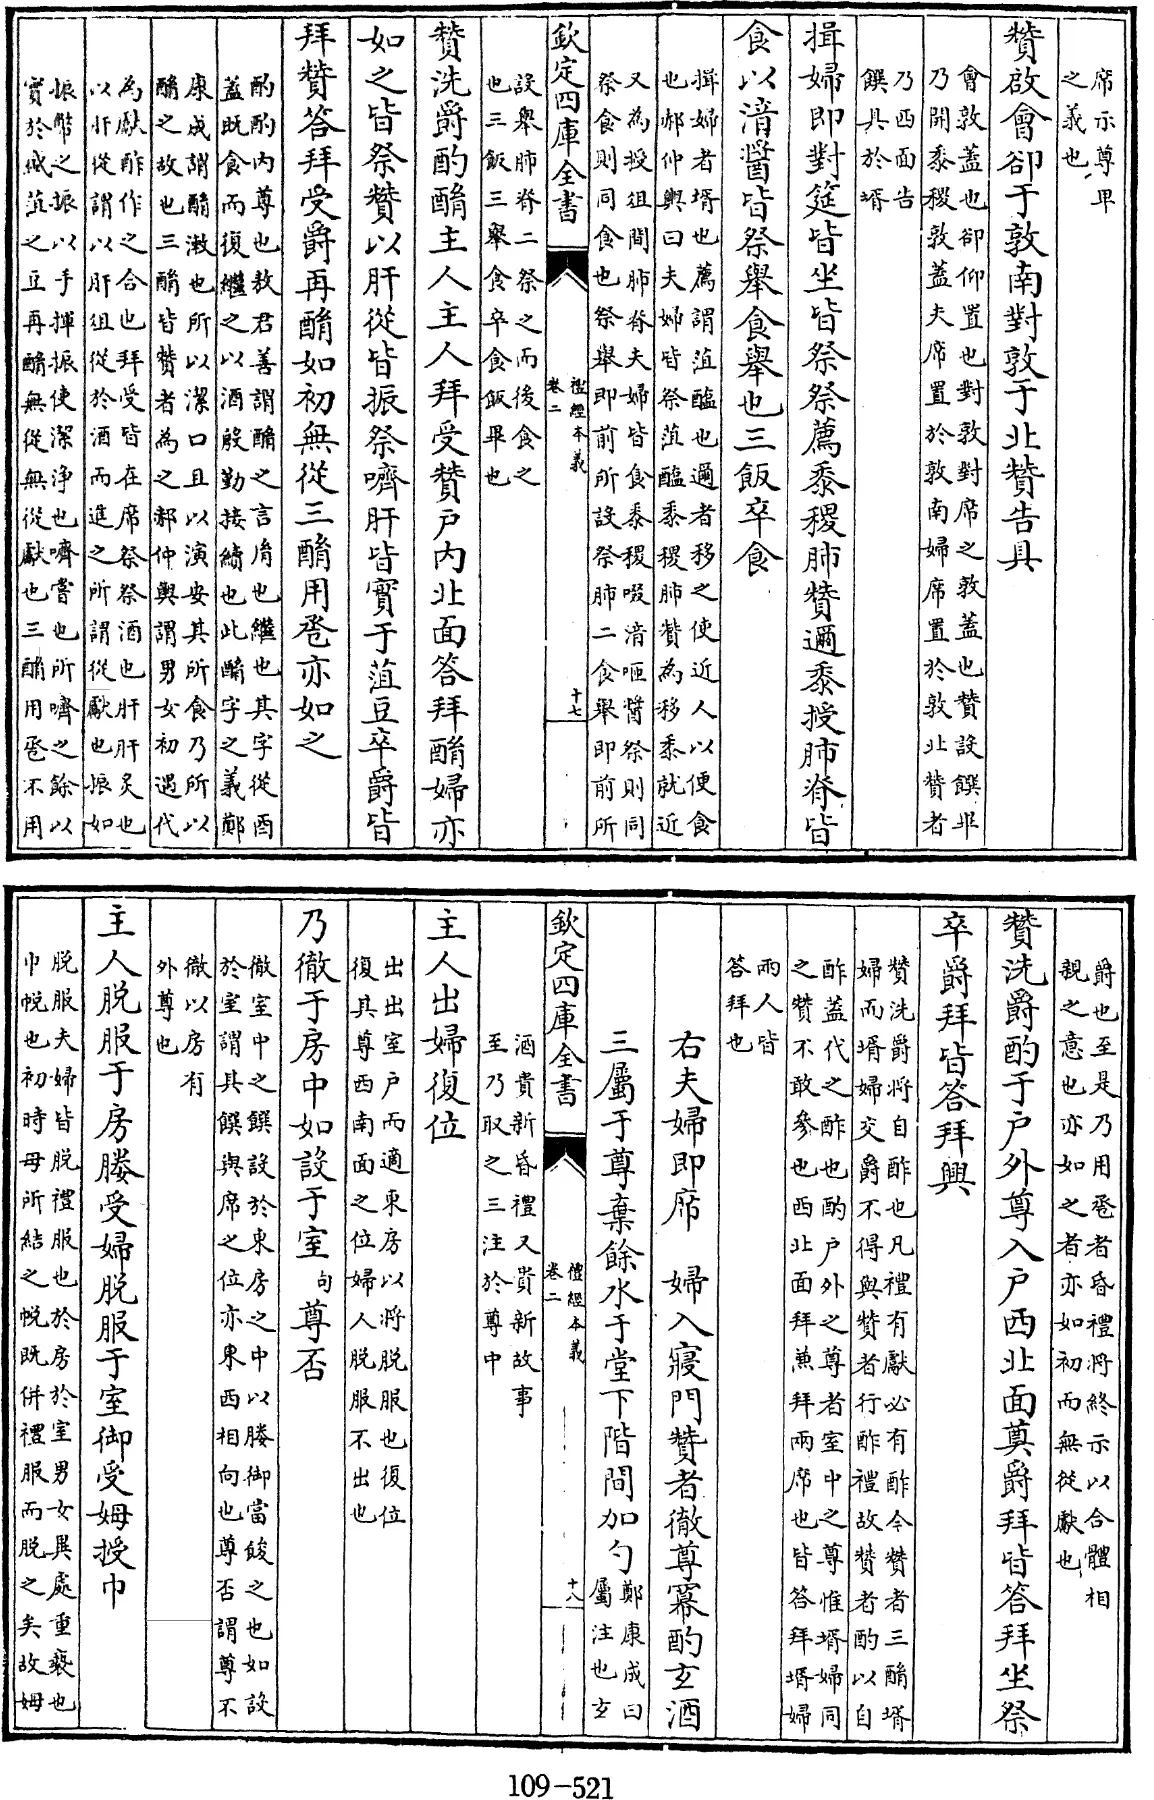 席示尊卑
之義也
贊啟會卻于敦南對敦于北贊告具
會敦蓋也卻仰置也對敦對席之敦蓋也贊設饌畢
乃開黍稷敦蓋夫席置於敦南婦席置於敦北贊者
乃西面告
饌具於壻
揖婦即對筵皆坐皆祭祭薦黍稷肺贊邇黍授肺脊皆
食以湆醬皆祭舉食舉也三飯卒食
揖婦者壻也薦謂菹醢也邇者移之使近人以便食
也郝仲輿曰夫婦皆祭菹醢黍稷肺贊為移黍就近
又為授俎間肺脊夫婦皆食黍稷啜湆咂醬祭則同
祭食則同食也祭舉即前所設祭肺二食舉即前所
欽定四庫全書
禮經本義
卷二
十七
設舉肺脊二祭之而後食之
也三飯三舉食卒食飯畢也
贊洗爵酌酳主人主人拜受贊戶內北面答拜酳婦亦
如之皆祭贊以肝從皆振祭嚌肝皆實于菹豆卒爵皆
拜贊答拜受爵再酳如初無從三酳用卺亦如之
酌酌內尊也敖君善謂酳之言胤也繼也其字從酉
蓋既食而復繼之以酒殷勤接續也此酳字之義鄭
康成謂酳漱也所以潔口且以演安其所食乃所以
酳之故也三酳皆贊者為之郝仲輿謂男女初遇代
為獻酢作之合也拜受皆在席祭祭酒也肝肝炙也
以肝從謂以肝俎從於酒而進之所謂從獻也振如
振幣之振以手揮振使潔淨也嚌嘗也所嚌之餘以
實於緘菹之豆再酳無從無從獻也三酳用卺不用
爵也至是乃用卺者昏禮將終示以合體相
親之意也亦如之者亦如初而無從獻也
贊洗爵酌于戶外尊入戶西北面奠爵拜皆答拜坐祭
卒爵拜皆答拜興
贊洗爵將自酢也凡禮有獻必有酢今贊者三酳壻
婦而壻婦交爵不得與贊者行酢禮故贊者酌以自
酢蓋代之酢也酌戶外之尊者室中之尊惟壻婦同
之贊不敢參也西北面拜兼拜兩席也皆答拜壻婦
兩人皆
答拜也
右夫婦即席　婦入寢門贊者徹尊冪酌玄酒
三屬于尊棄餘水于堂下階間加勺
鄭康成曰
屬注也玄
欽定四庫全書
禮經本義
卷二
十八
酒貴新昏禮又貴新故事
至乃取之三注於尊中
主人出婦復位
出出室戶而適東房以將脫服也復位
復其尊西南面之位婦人脫服不出也
乃徹于房中如設于室句尊否
徹室中之饌設於東房之中以媵御當餕之也如設
於室謂其饌與席之位亦東西相向也尊否謂尊不
徹以房有
外尊也
主人脫服于房媵受婦脫服于室御受姆授巾
脫服夫婦皆脫禮服也於房於室男女異處重褻也
巾帨也初時母所結之帨既併禮服而脫之矣故姆
109-521